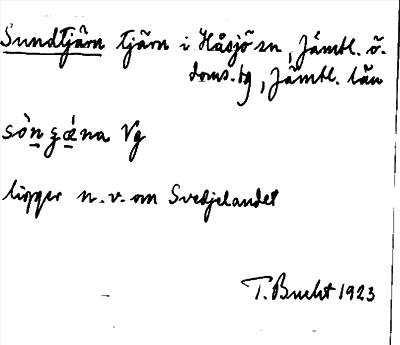 Sundtjärn tjärn i Håsjö sn, Jämtl. ö.
doms.bg, Jämtl. län
Vg
ligger n.v. om Svedjelandet
T. Bucht 1923